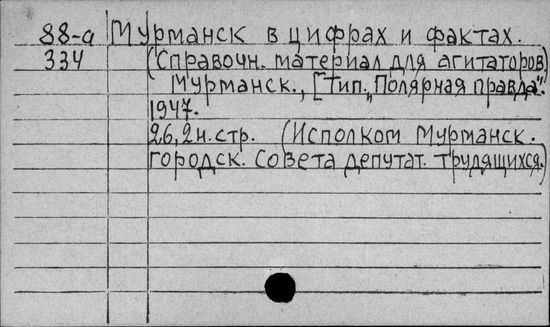 88-а Мурманск в цифрах и фактах.
334 (Справочн. материал для агитаторов)
Мурманск., [Тип. „Полярная правда".
1947.
26,2н.стр. (Исполком Мурманск.
городск. Совета депутат. трудящихся.)